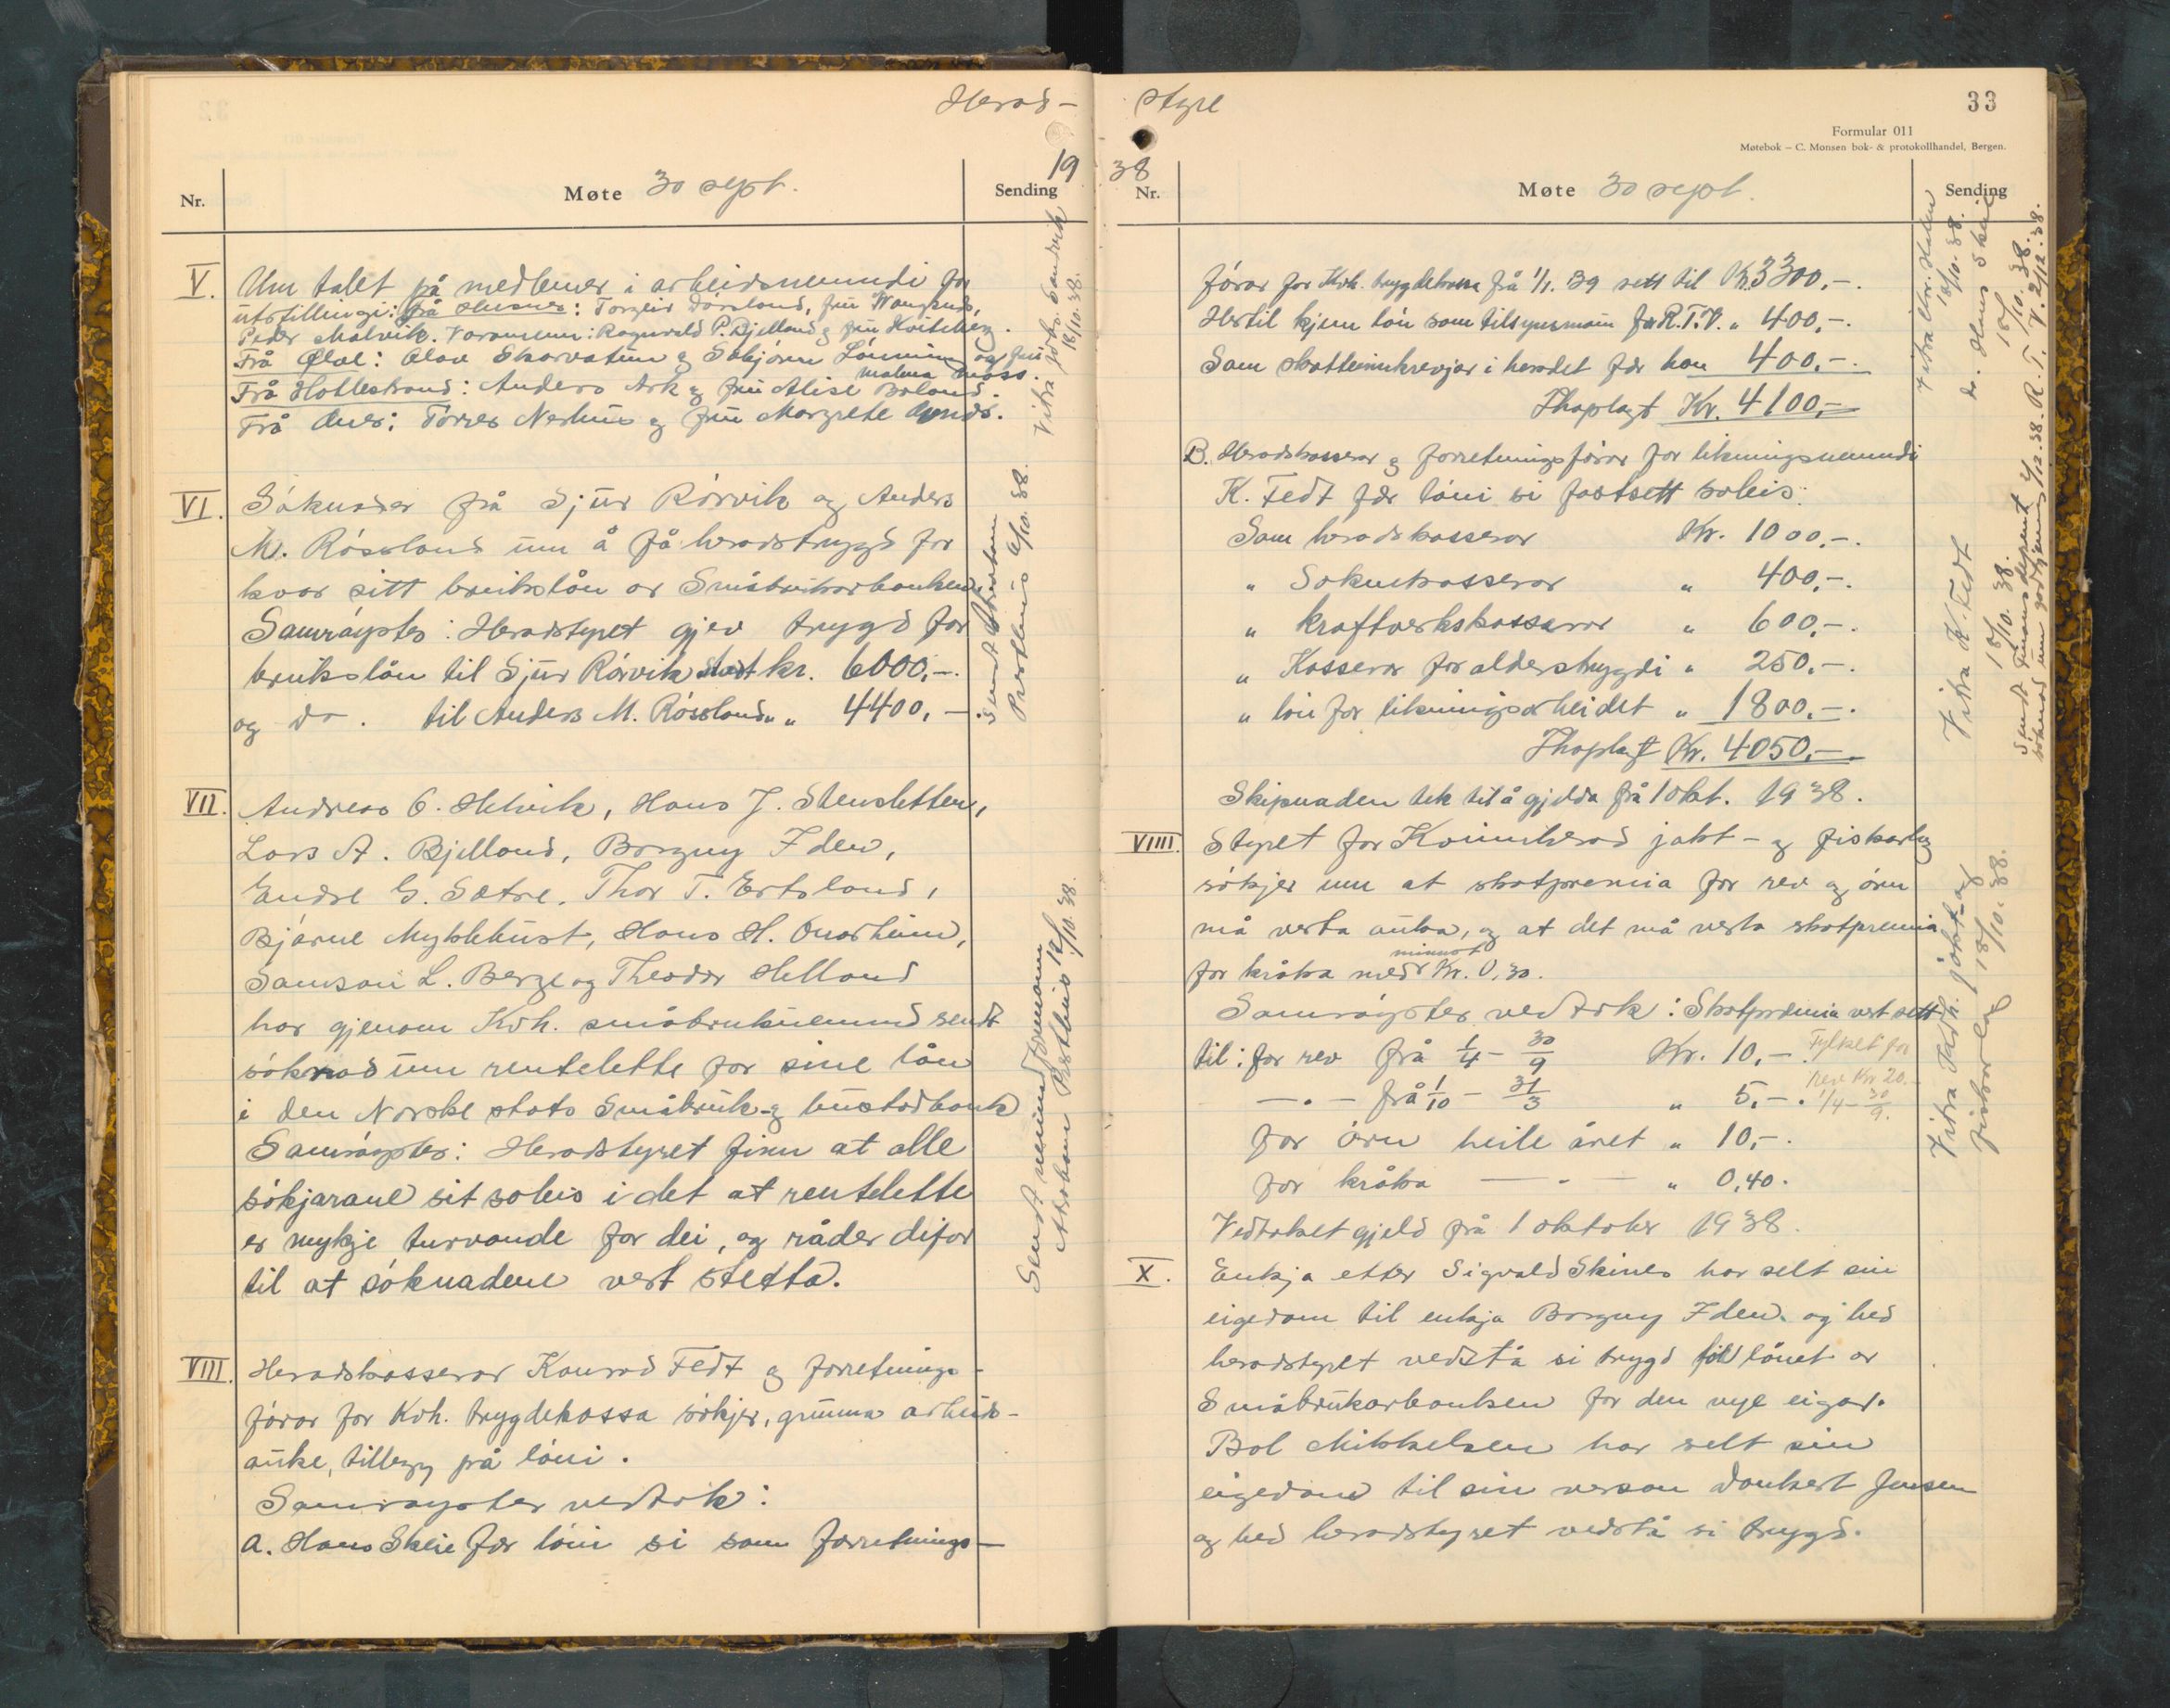 Herad-
Møte 30 sept.
19
Nr.
Sending
V. Um talet på medlemer i arbeidsnemndi for
utstillingi: frå Husnes: Torgeir Dørsland, fru Wangsnes,
Peder Malvik. Varamenn: Ragnvald P. Bjelland og fru Kvitsberg.
Frå Ølve: Olav Skarvatun og Sebjørn Lønning og fru
malma moss.
Frå Hatlestrand: Anders Ark og fru Alise Boland.
Frå Ænes: Torres Neshus og fru Margrete Ænes.
Vitra jorbr. Sandvik
18/10.38.
VI. Søknader frå Sjur Rørvik og Anders
M. Røssland um å få heradstrygd for
kvar sitt brukslån av Småbrukarbanken.
Samrøystes: Heradstyret gjev trygd for
brukslån til Sjur Rørvik stort kr. 6000,-.
og do. til Anders M. Røssland " " 4400,-.
Sendt Abraham
Presthus 6/10.38.
VII. Andreas O. Helvik, Hans J. Stensletten,
Lars A. Bjelland, Borgny Iden,
Endre G. Sætre, Thor T. Ertsland,
Bjarne Myklebust, Hans H. Onarheim,
Samson L. Berge og Theodor Helland
har gjenom Kvh. småbruknemnd sendt
søknad um rentelette for sine lån
i den Norske stats Småbruk- og bustadbank
Samrøystes: Heradstyret finn at alle
søkjarane sit soleis i det at rentelette
er mykje turvande for dei, og råder difor
til at søknadene vert stetta.
Sendt nemndformann
Abraham Presthus 12/10.38.
VIII. Heradskasserar Konrad Fedt og forretnings-
førar for Kvh. trygdekassa søkjer, grunna arbeids-
auke, tillegg på løni.
Samrøystes vedtok:
A. Hans Skeie fær løni si som forretnings-
styre
33
Formular 011
Møtebok – C. Monsen bok- & protokollhandel, Bergen.
38
Nr.
Møte 30 sept.
Sending
førar for Kvh. trygdekassa frå 1/1. 39 sett til Kr. 3300,-.
Hertil kjem løn som tilsynsmann for R.T.V. " 400,-.
Som skatteinnkrevjar i heradet fær han 400,-.
Ihoplagt Kr. 4100,-
B. Heradskasserar og forretningsførar for likningsnemndi
K. Fedt fær løni si fastsett soleis:
Som heradskasserar Kr. 1000,-.
" Soknekasserar " 400,-.
" kraftverkskasserar " 600,-.
" Kasserar for alderstrygdi " 250,-.
" løn for likningsarbeidet " 1800,-.
Ihoplagt Kr. 4050,-.
Skipnaden tek til å gjelda frå 1 okt. 1938.
dr. Hans Skeie
18/10.38.
Vitra K. Fedt
18/10.38.
VIIII. Styret for Kvinnherad jakt- og fiskarlag
søkjer um at skotpremia for rev og ørn
må verta auka, og at det må verta skotpremia
minnst
for kråka med Kr. 0,30.
Samrøystes vedtok: Skotpremia vert sett
til: for rev frå 1/4 - 30/9 Kr. 10,-.
Fylket for
rev Kr 20.-
1/4 - 30/9.
— " — frå 1/10 - 31/3 " 5,-.
for ørn heile året " 10,-.
for kråka — " — " 0,40.
Vedtaket gjeld frå 1 oktober 1938.
Vitra Kvh. jakt- og
fiskarlag 18/10.38.
X. Enkja etter Sigvald Skines har selt sin
eigedom til enkja Borgny Iden. og bed
heradstyret vedstå si trygd for lånet av
Småbrukarbanken for den nye eigar.
Bol Mikkelsen har selt sin
eigedom til sin verson Dankert Jensen
og bed heradstyret vedstå si trygd.